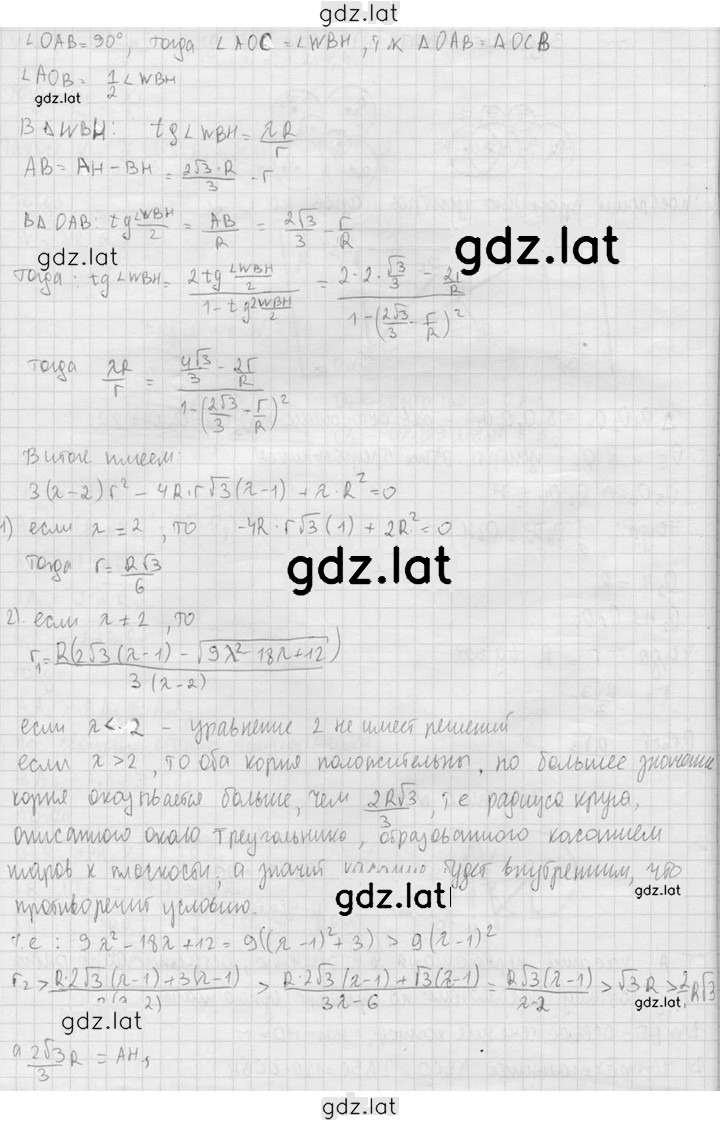 gdz.lat
∠OAB = 90°, тогда ∠AOC = ∠WBH, т.к ΔOAB = ΔOCB
∠AOB = 1/2 ∠WBH
gdz.lat
В ΔWBH: tg∠WBH = λR/r
AB = AH - BH = 2√3·R/3 - r
В ΔOAB: tg ∠WBH/2 = AB/R = 2√3/3 - r/R
gdz.lat
gdz.lat
Тогда: tg∠WBH = 2tg ∠WBH/2 / 1 - tg² ∠WBH/2 = 2·2·√3/3 - 2r/R / 1 - (2√3/3 - r/R)²
тогда λR/r = 4√3/3 - 2r/R / 1 - (2√3/3 - r/R)²
В итоге имеем:
3(λ-2)r² - 4R·r√3(λ-1) + λ·R² = 0
1) если λ = 2, то -4R·r√3(1) + 2R² = 0
Тогда r = R√3/6
gdz.lat
2). если λ ≠ 2, то
r₁ = R(2√3(λ-1) - √9λ²-18λ+12) / 3(λ-2)
если λ < 2 - уравнение 2 не имеет решений
если λ > 2, то оба корня положительны, но большее значение
корня оказывается больше, чем 2R√3/3, т.е радиуса круга,
описанного около треугольника, образованного касанием
шаров к плоскости, а значит касание будет внутренним, что
gdz.lat
противоречит условию.
т.е: 9λ²-18λ+12 = 9((λ-1)²+3) > 9(λ-1)²
r₂ > R·2√3(λ-1)+3(λ-1) / 3(λ-2) > R·2√3(λ-1)+√3(λ-1) / 3λ-6 = R√3(λ-1) / λ-2 > √3R > 2/3 R√3
gdz.lat
gdz.lat
а 2√3/3 R = AH,
gdz.lat